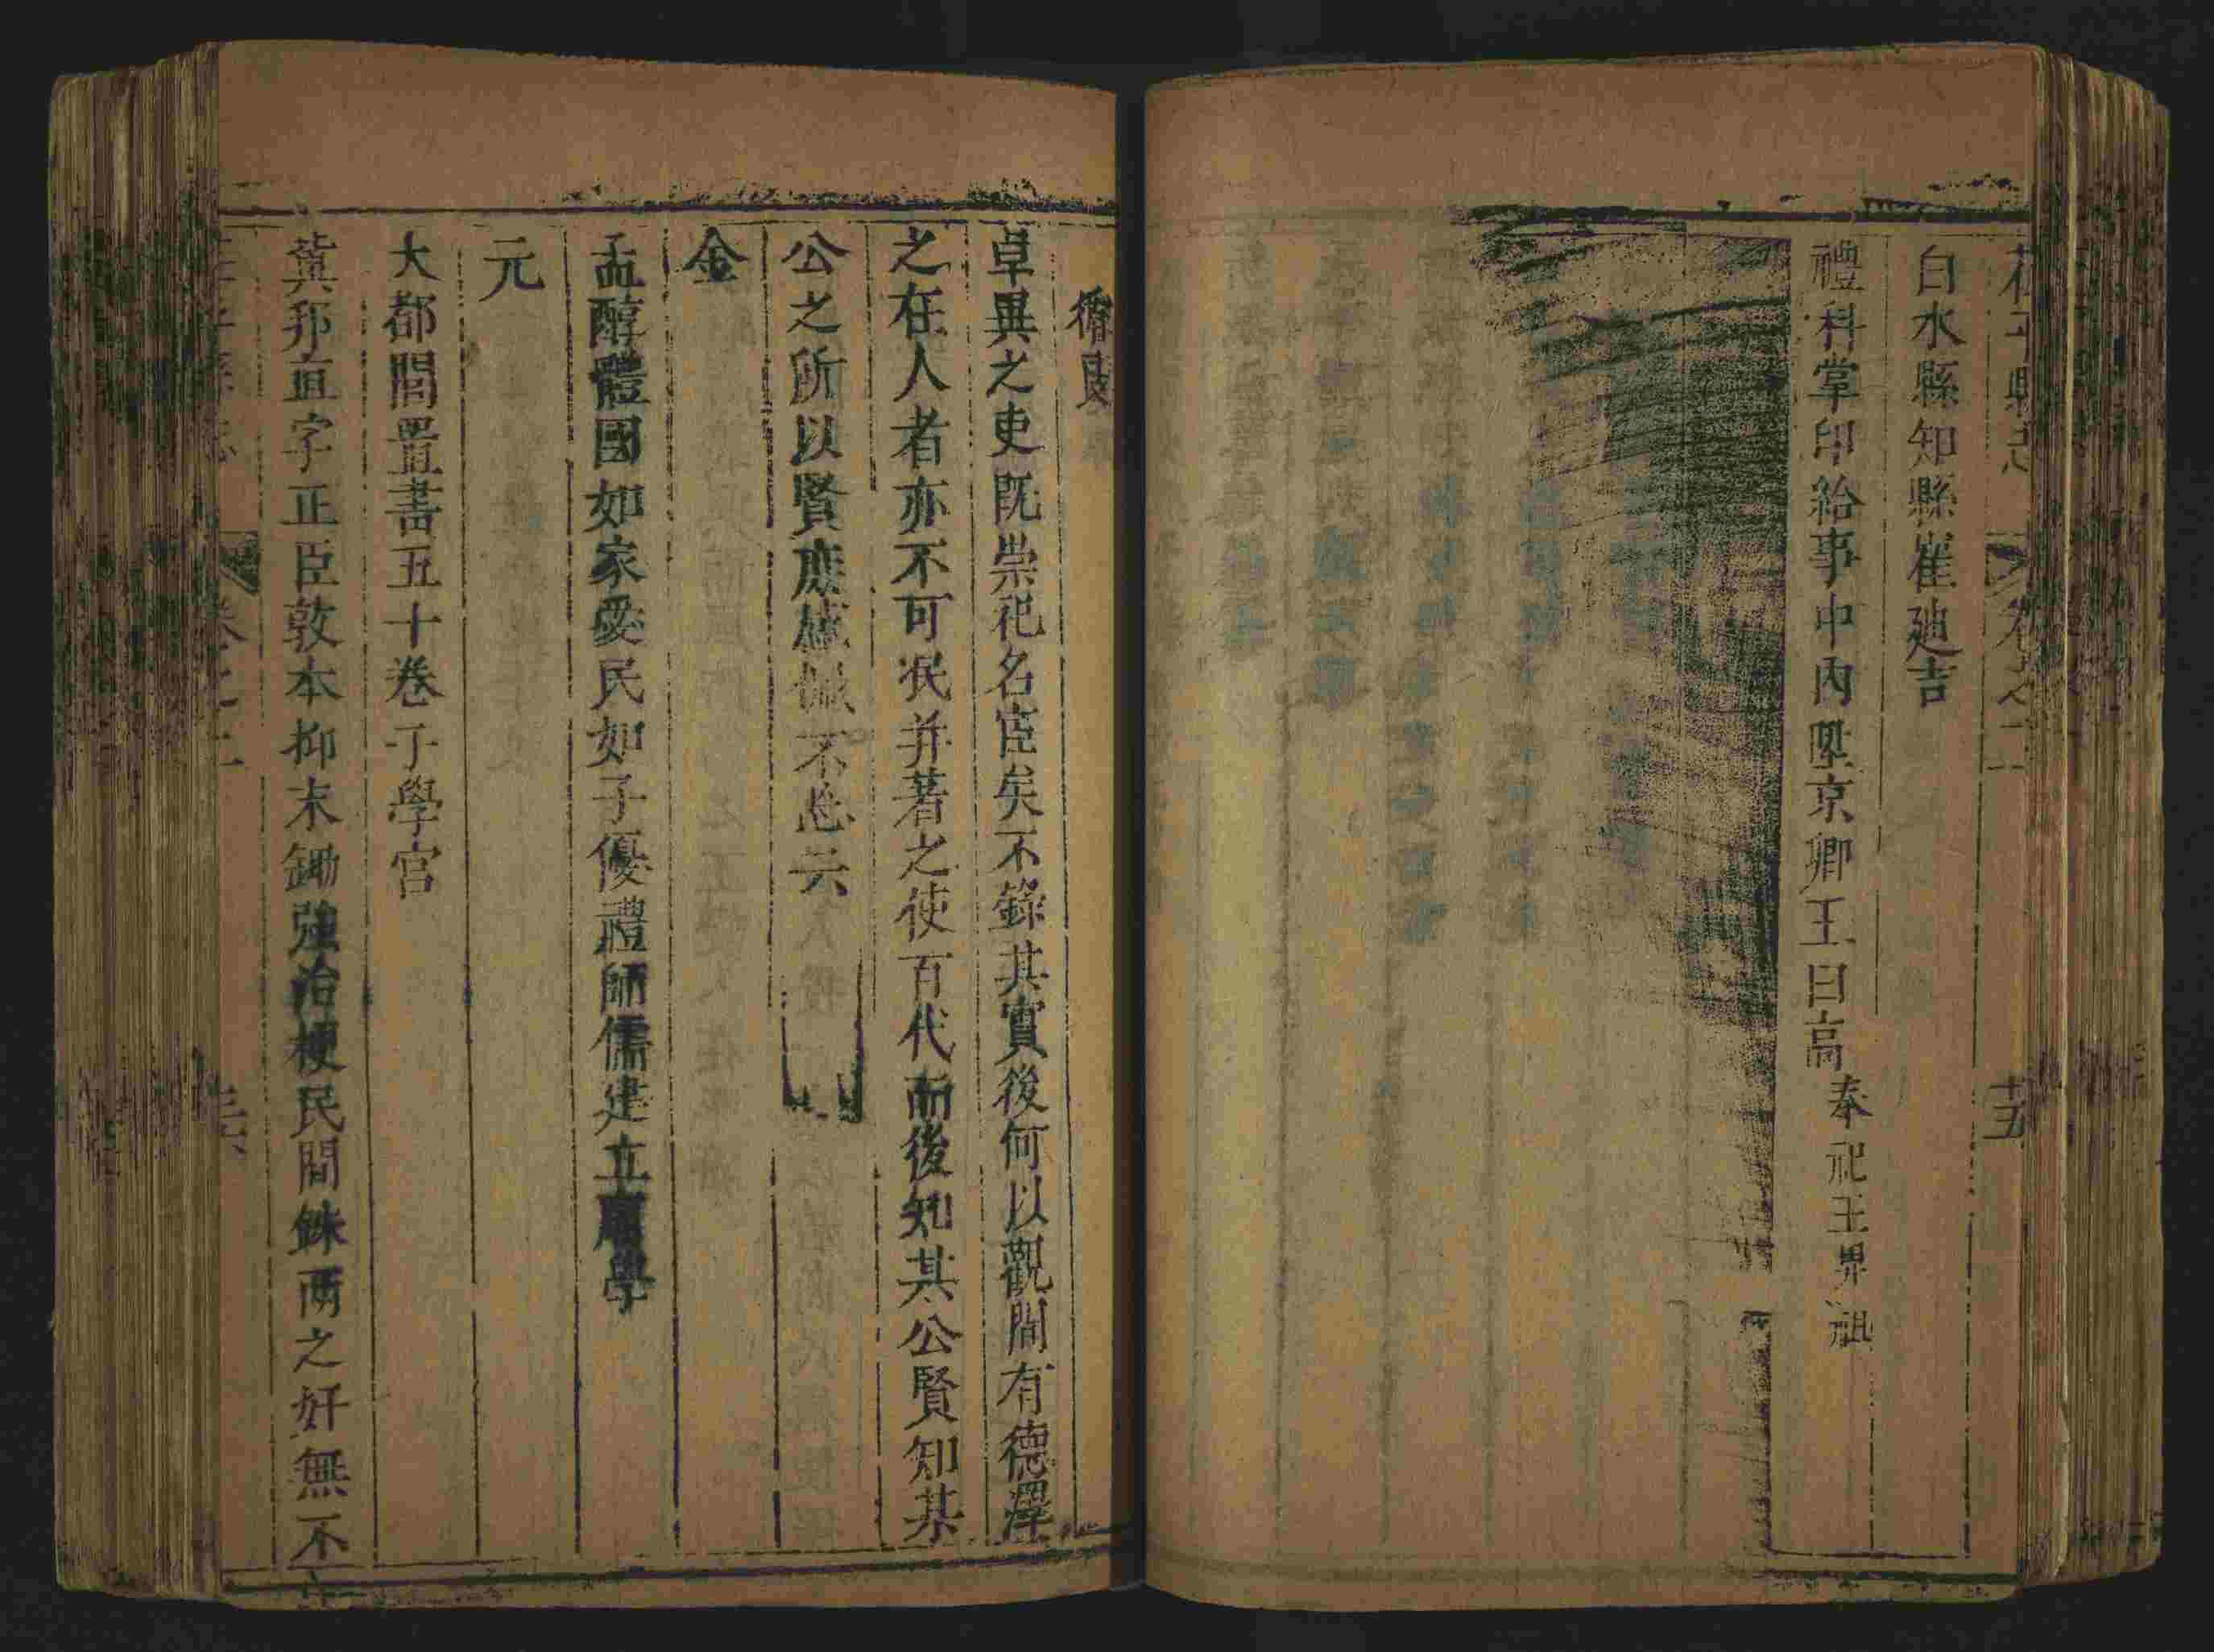 白水縣知縣崔廸吉
禮科掌印給事中內陞京卿王曰高 奉祀王界祖
循良
卓異之吏既崇祀名宦矣不錄其實後何以觀間有德澤
之在人者亦不可泯并著之使百代而後知其公賢知某
公之所以賢庶 不 云
金
孟醇體國如家愛民如子優禮師儒建立廟學
元
大都閭置書五十卷于學官
冀邦直字正臣敦本抑末鋤強治梗民間銖兩之奸無不
卷之二